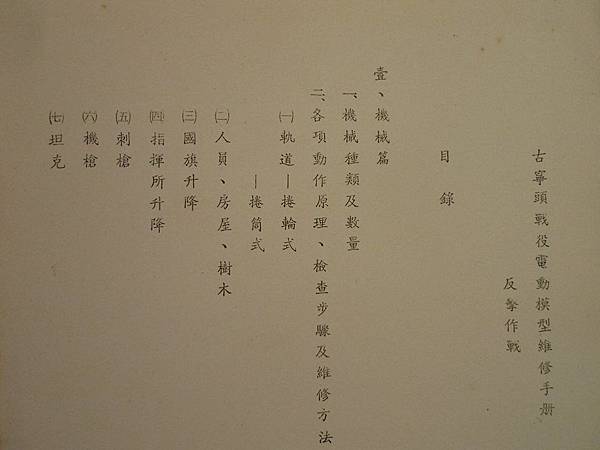 古寧頭戰役電動模型維修手册
反擊作戰
目錄
壹、機械篇
一、機械種類及數量
二、各項動作原理、檢查步驟及維修方法
㈠軌道—捲輪式
—捲筒式
㈡人員、房屋、樹木
㈢國旗升降
㈣指揮所升降
㈤刺槍
㈥機槍
㈦坦克